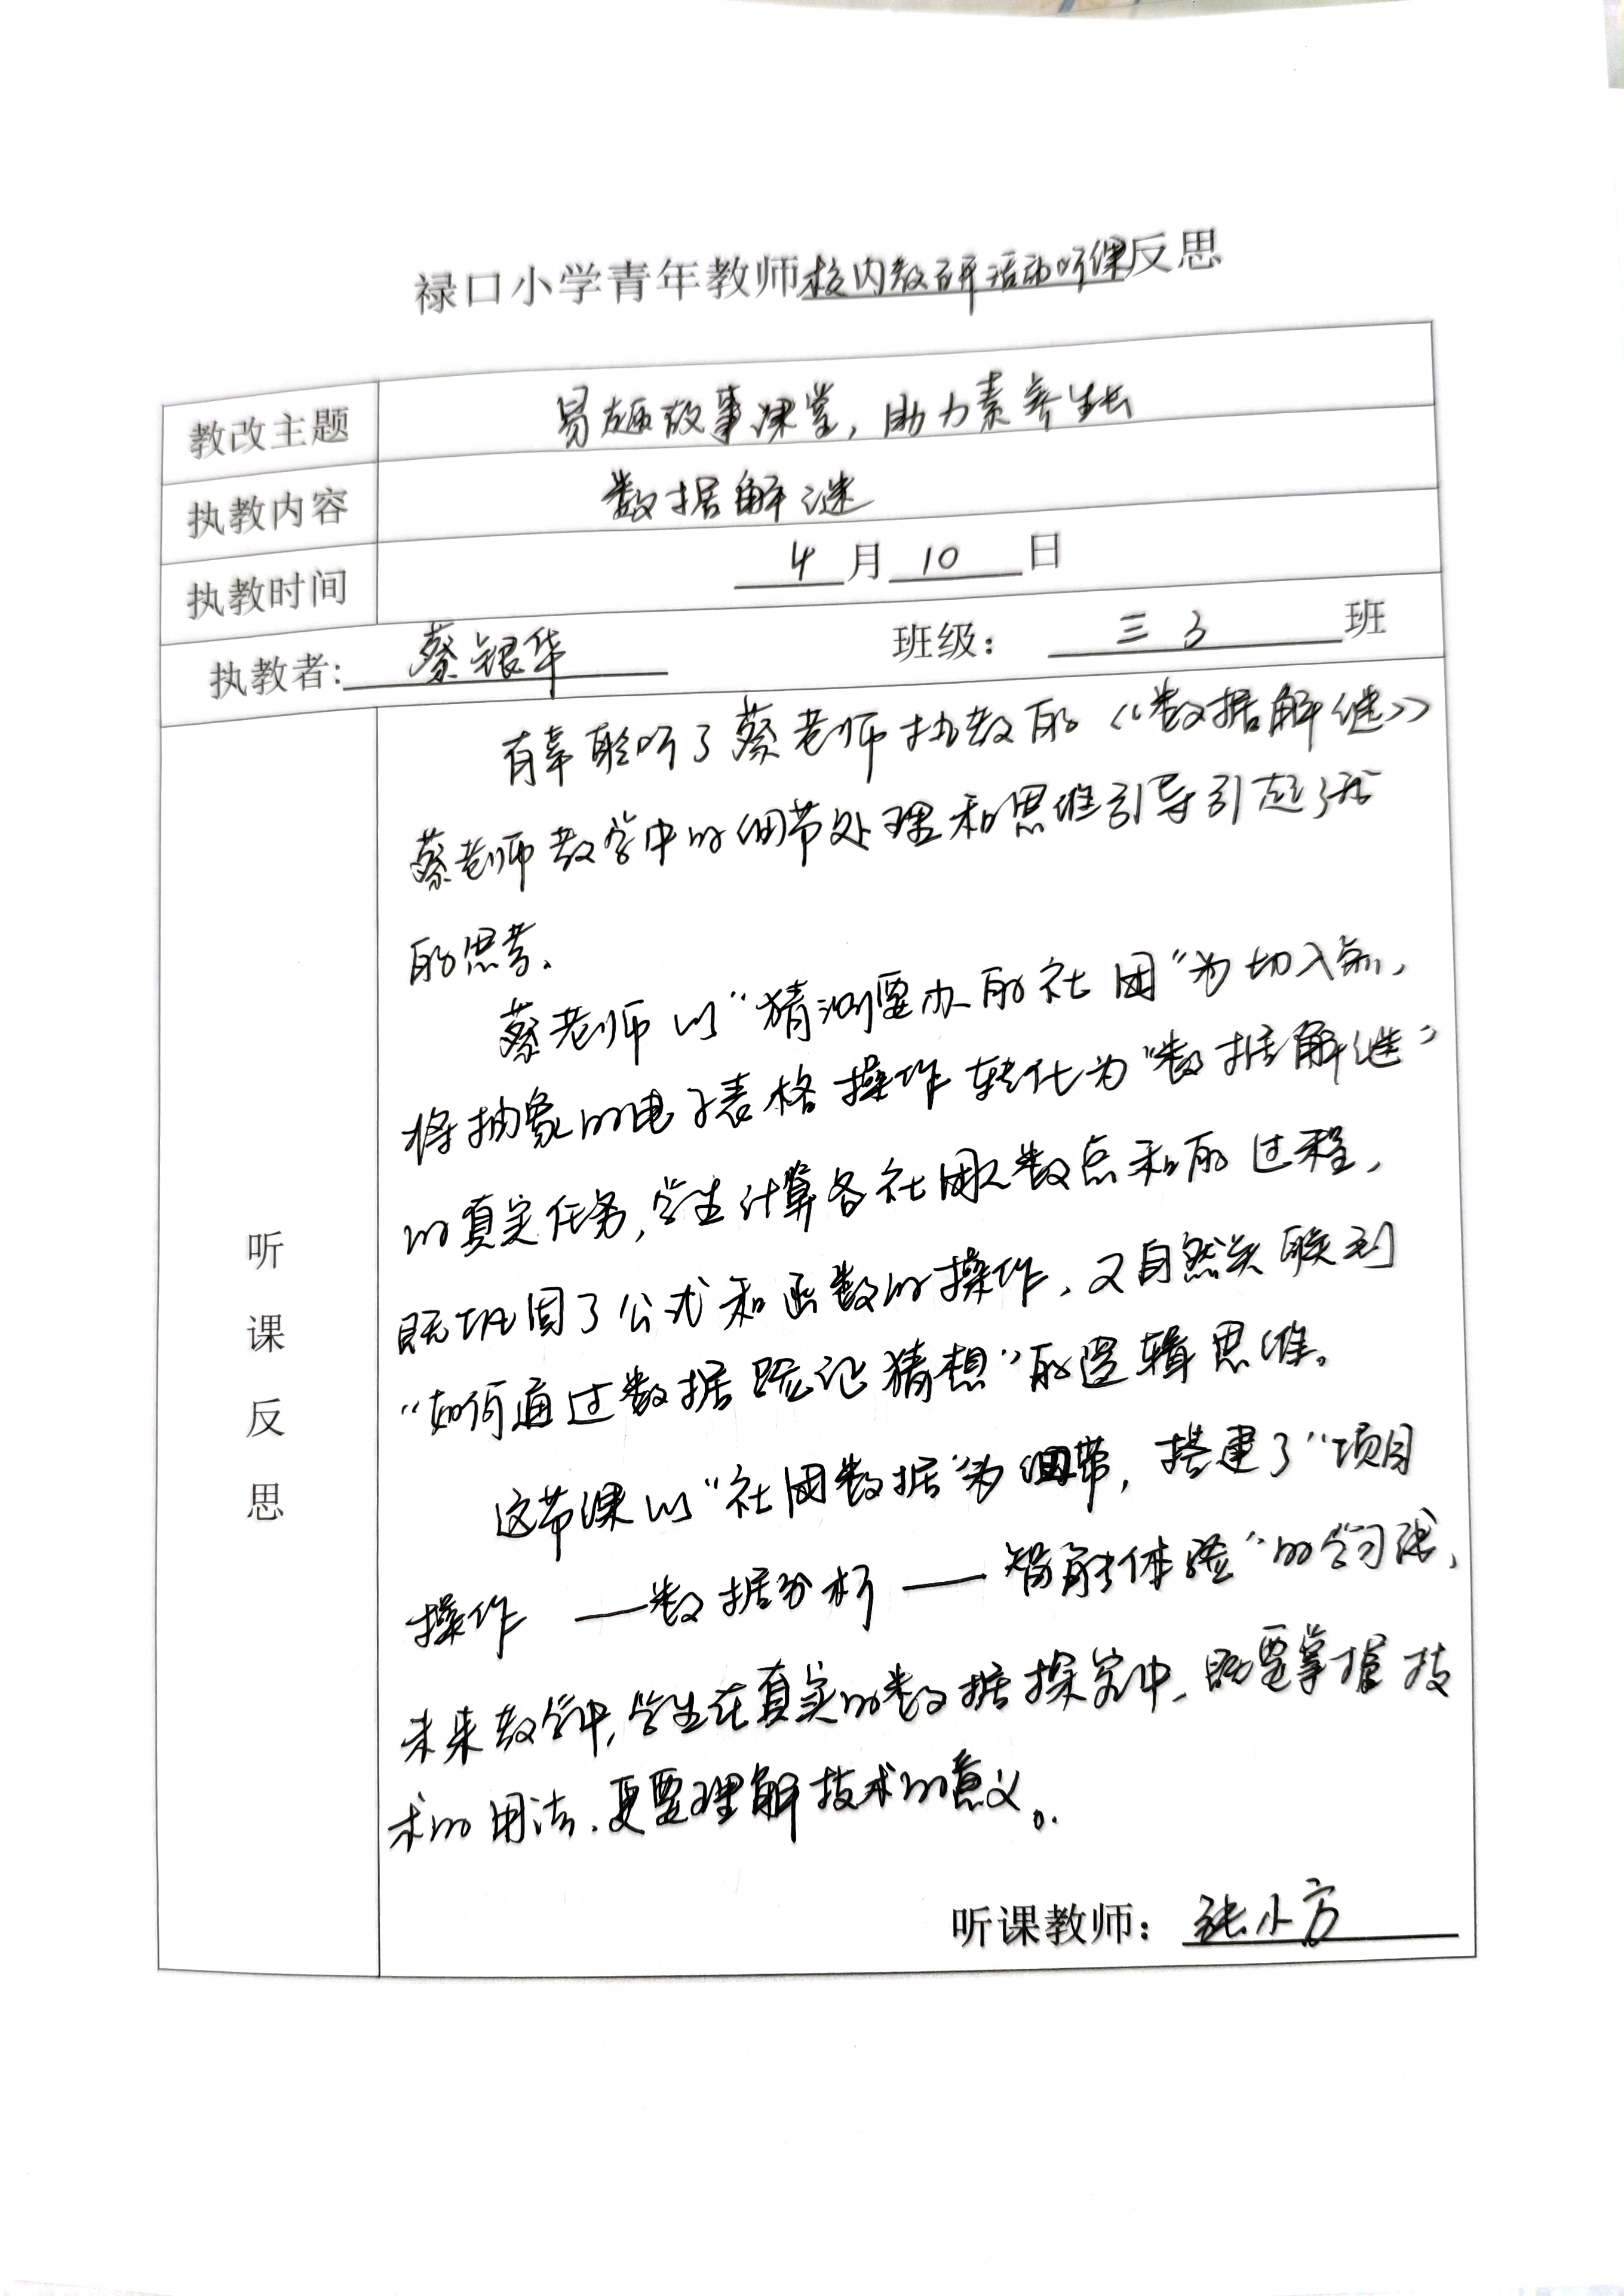 禄口小学青年教师校内教研活动听课反思
教改主题 易趣故事课堂，助力素养生长
执教内容 数据解谜
执教时间 4月10日
执教者：蔡银华 班级：三3班
听课反思
有幸聆听了蔡老师执教的《数据解谜》
蔡老师教学中的细节处理和思维引导引起了我
的思考、
蔡老师以“猜测要办的社团”为切入点，
将抽象的电子表格操作转化为“数据解谜”
的真实任务，学生计算各社团人数总和的过程，
既巩固了公式和函数的操作，又自然关联到
“如何通过数据验证猜想”的逻辑思维。
这节课以“社团数据”为纽带，搭建了“项目
操作——数据分析——智能体验”的学习线，
未来教学中，学生在真实的数据探究中，既要掌握技
术的用法，更要理解技术的意义。
听课教师：张小方